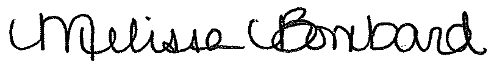 Melissa Bombard